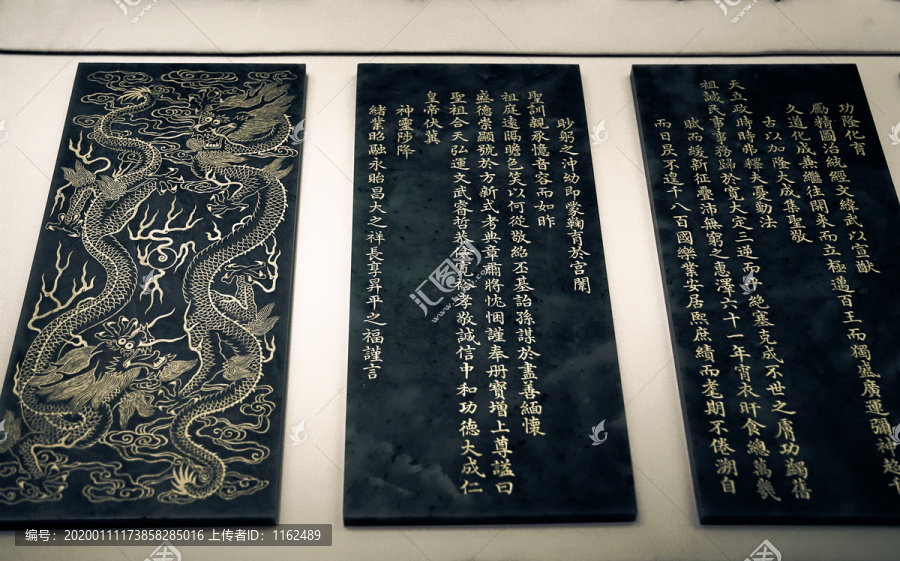 功隆化育
勵精圖治統經文緯武以宣猷
久道化成兼繼往開來而立極邁百王而獨盛廣運彌神越千
古以加隆大成集聖敬
天立政時時弗釋夫憂勤法
祖誠民事事務歸於寬大定三逆而手絕塞克成不世之膚功蠲舊
賦而綏新征疊沛無窮之惠澤六十一年宵衣旰食總萬幾
而日昃不遑千八百國樂業安居熙庶績而耄期不倦溯自
眇躬之沖幼即蒙鞠育於宮闈
聖訓親承憶音容而如昨
祖庭遠隔瞻色笑以何從敬紹丕基詒孫謀於盡善緬懷
盛德崇顯號於方新式考典章肅將忱悃謹奉册寶增上尊謚曰
聖祖合天弘運文武睿哲恭儉寬裕孝敬誠信中和功德大成仁
皇帝伏冀
神靈陟降
緒業昭融永貽昌大之祥長享昇平之福謹言
汇图网
www.huitu.com
编号：20200111173858285016 上传者ID：1162489